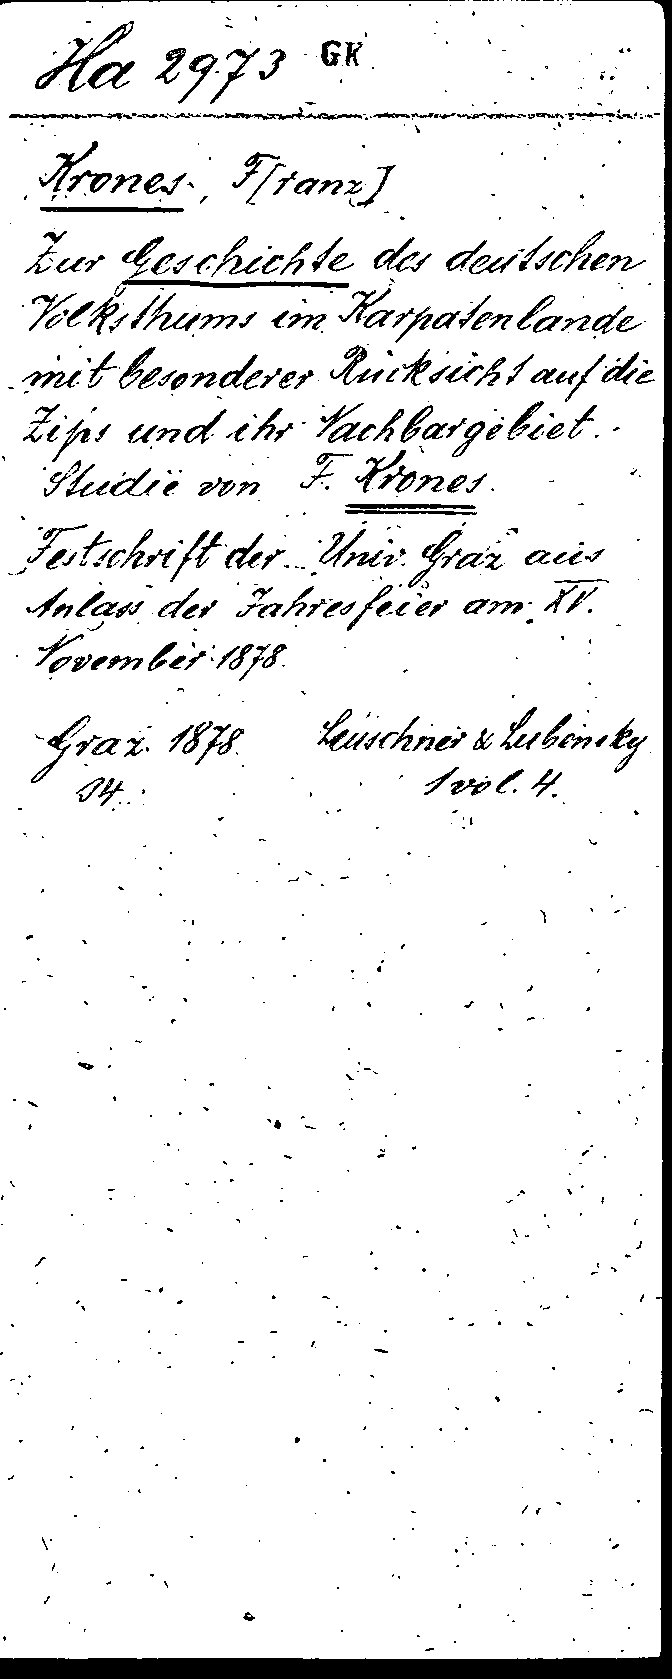 Ha 2973 GK
Krones, F[ranz]
Zur Geschichte des deutschen
Volksthums im Karpatenlande
mit besonderer Rücksicht auf die
Zips und ihr Nachbargebiet.
Studie von F. Krones.
Festschrift der Univ. Graz aus
Anlass der Jahresfeier am XV.
November 1878.
Graz. 1878. Leuschner & Lubensky
1 vol. 4.